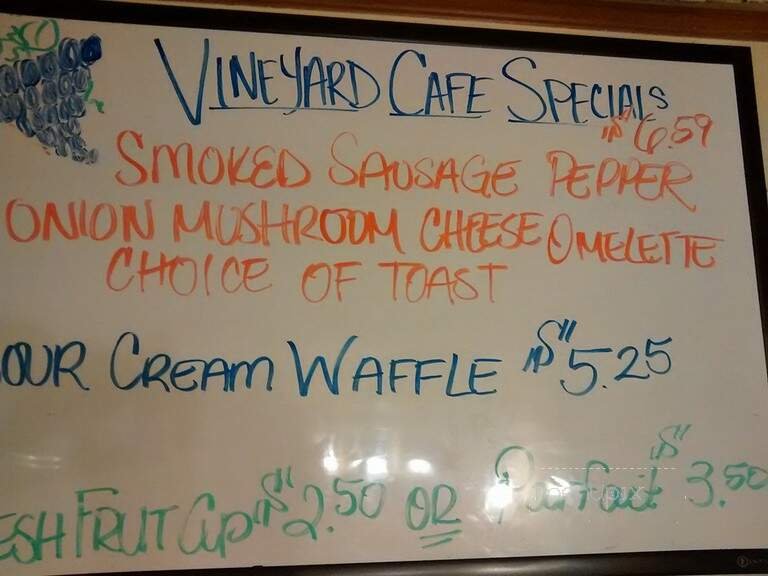 VINEYARD CAFE SPECIALS
$6.59
SMOKED SAUSAGE PEPPER
ONION MUSHROOM CHEESE OMELETTE
CHOICE OF TOAST
OUR CREAM WAFFLE $5.25
ESH FRUIT Cup $2.50 OR Parfait $3.50